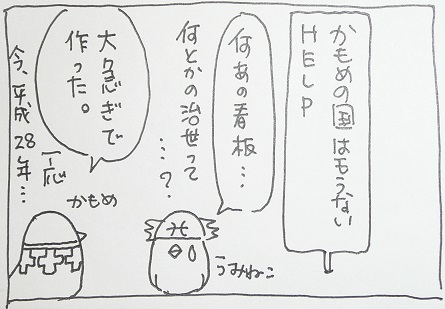 かもめの国はもうない
HELP
何あの看板…
何とかの治世って
…？
うみねこ
大急ぎで
作った。
かもめ
一応
今、平成28年…